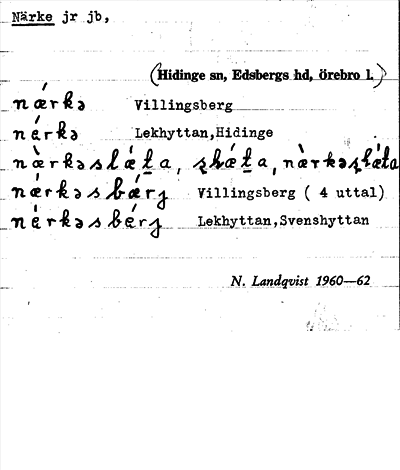 Närke jr jb,
(Hidinge sn, Edsbergs hd, örebro l.)
nǽrkə Villingsberg
nérkə Lekhyttan,Hidinge
Villingsberg ( 4 uttal)
Lekhyttan,Svenshyttan
N. Landqvist 1960—62